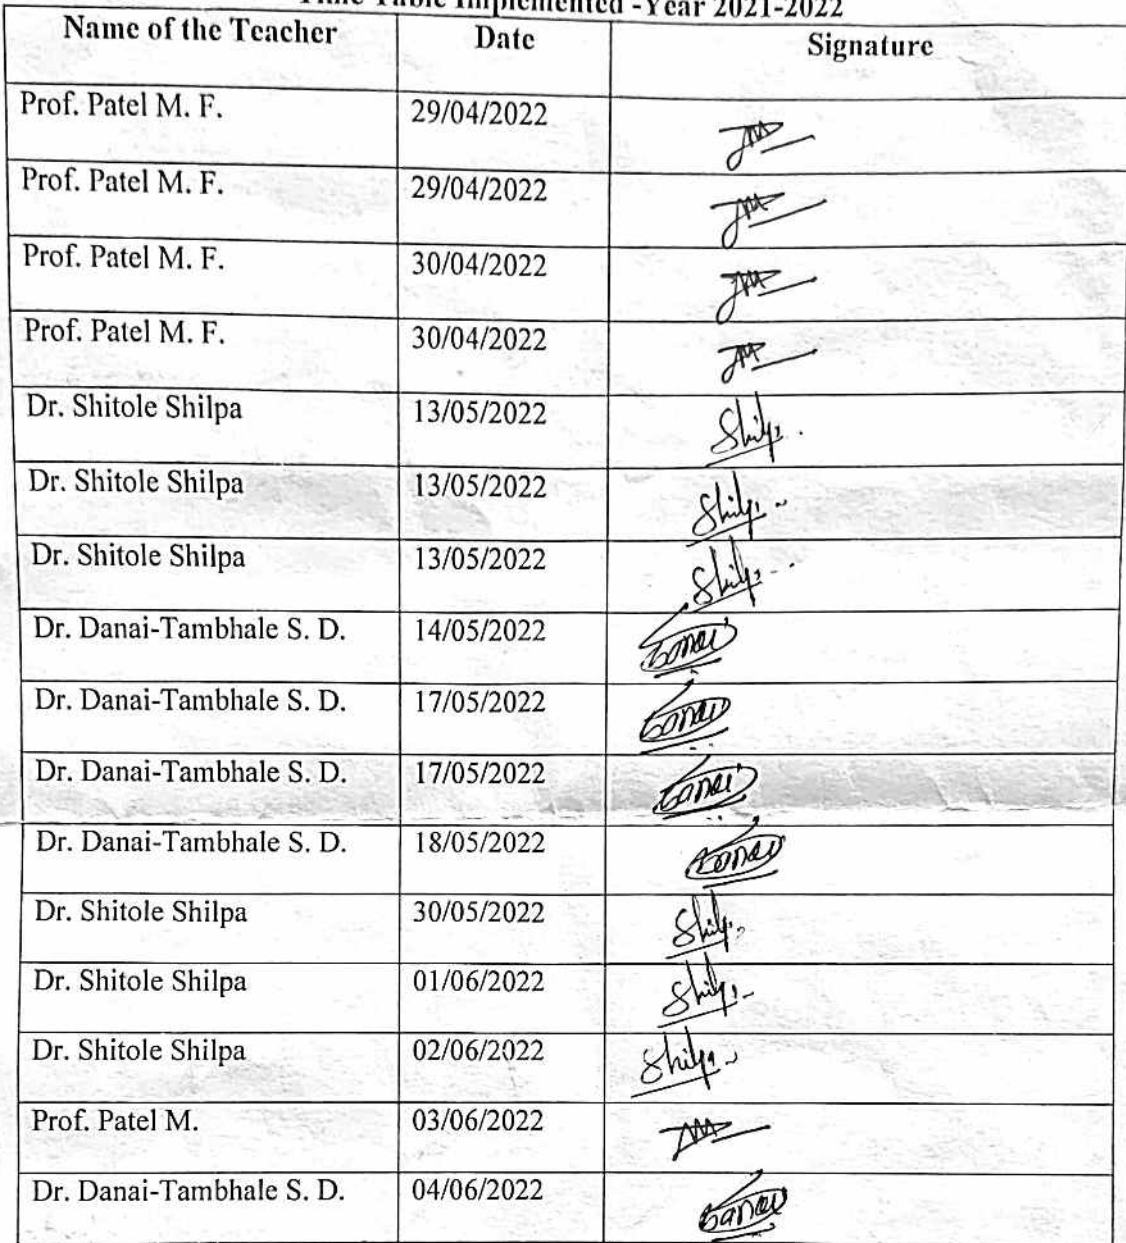 Time Table Implemented -Year 2021-2022
Name of the Teacher Date Signature
Prof. Patel M. F. 29/04/2022
Prof. Patel M. F. 29/04/2022
Prof. Patel M. F. 30/04/2022
Prof. Patel M. F. 30/04/2022
Dr. Shitole Shilpa 13/05/2022
Dr. Shitole Shilpa 13/05/2022
Dr. Shitole Shilpa 13/05/2022
Dr. Danai-Tambhale S. D. 14/05/2022
Dr. Danai-Tambhale S. D. 17/05/2022
Dr. Danai-Tambhale S. D. 17/05/2022
Dr. Danai-Tambhale S. D. 18/05/2022
Dr. Shitole Shilpa 30/05/2022
Dr. Shitole Shilpa 01/06/2022
Dr. Shitole Shilpa 02/06/2022
Prof. Patel M. 03/06/2022
Dr. Danai-Tambhale S. D. 04/06/2022